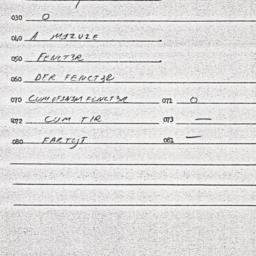 030 O
040 A MJZUZE
050 FENCTER
060 DER FENCTER
070 CUM OFJNJM FENCTER 071 O
072 CUM TIR 073 —
080 FARTOJT 081 —